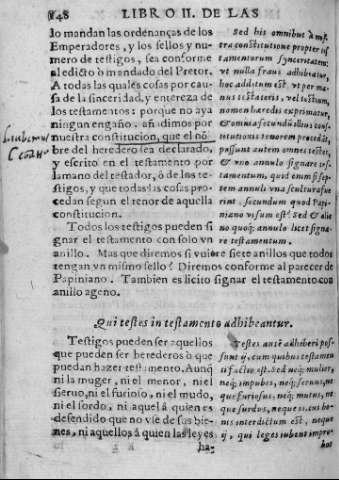 148 LIBRO II. DE LAS
lo mandan las ordenanças de los
Emperadores, y los sellos y nu-
mero de testigos, sea conforme
al edicto ò mandado del Pretor.
A todas las quales cosas por cau-
sa de la sinceridad, y entereza de
los testamentos: porque no aya
ningun engaño, añdimos por
nuestra constitucion, que el nō-
bre del heredero sea declarado,
y escrito en el testamento por
la mano del testador, ò de los te-
stigos, y que todas las cosas pro-
cedan segun el tenor de aquella
constitucion.
Todos los testigos pueden si
gnar el testamento con solo vn
anillo. Mas que diremos si vuiere siete anillos que todos
tengan vn mismo sello? Diremos conforme al parecer de
Papiniano. Tambien es licito signar el testamento con
anillo ageno.
Sed his omnibus à nost
tra constitutione propter tes
tamentorum synceritatem:
vt nulla fraus adhibeatur,
hoc additum est. vt per ma-
nus testatoris, vel testium,
nomen hæredis exprimatur,
& omnia secundū illius cons
titutionis tenorem procedāt,
possunt autem omnes testes,
& vno annulo signare tes
tamentum, quid enim si sep-
tem annuli vna sculptura fue
rint, secundum quod Papi-
niano visum est? Sed & alie
no quoq; annulo licet signa-
re testamentum.
Qui testes in testamento adhibeantur.
Testigos pueden ser aquellos
que pueden ser herederos ò que
puedan hazer testamento. Aunq̄
ni la muger, ni el menor, ni el
sieruo, ni el furioso, ni el mudo,
ni el sordo, ni aquel à quien es
defendido que no vse de sus bie-
nes, ni aquellos à quien las leyes
ha-
Testes autē adhiberi pos-
sunt ij, cum quibus testamen
ti factio est. Sed neq; mulier,
neq; impubes, neq; seruus, ne
que furiosus, neq; mutus, ne
que surdus, neque is cui bo-
nis interdictum est, neque
ij, qui leges iubent impro-
bos